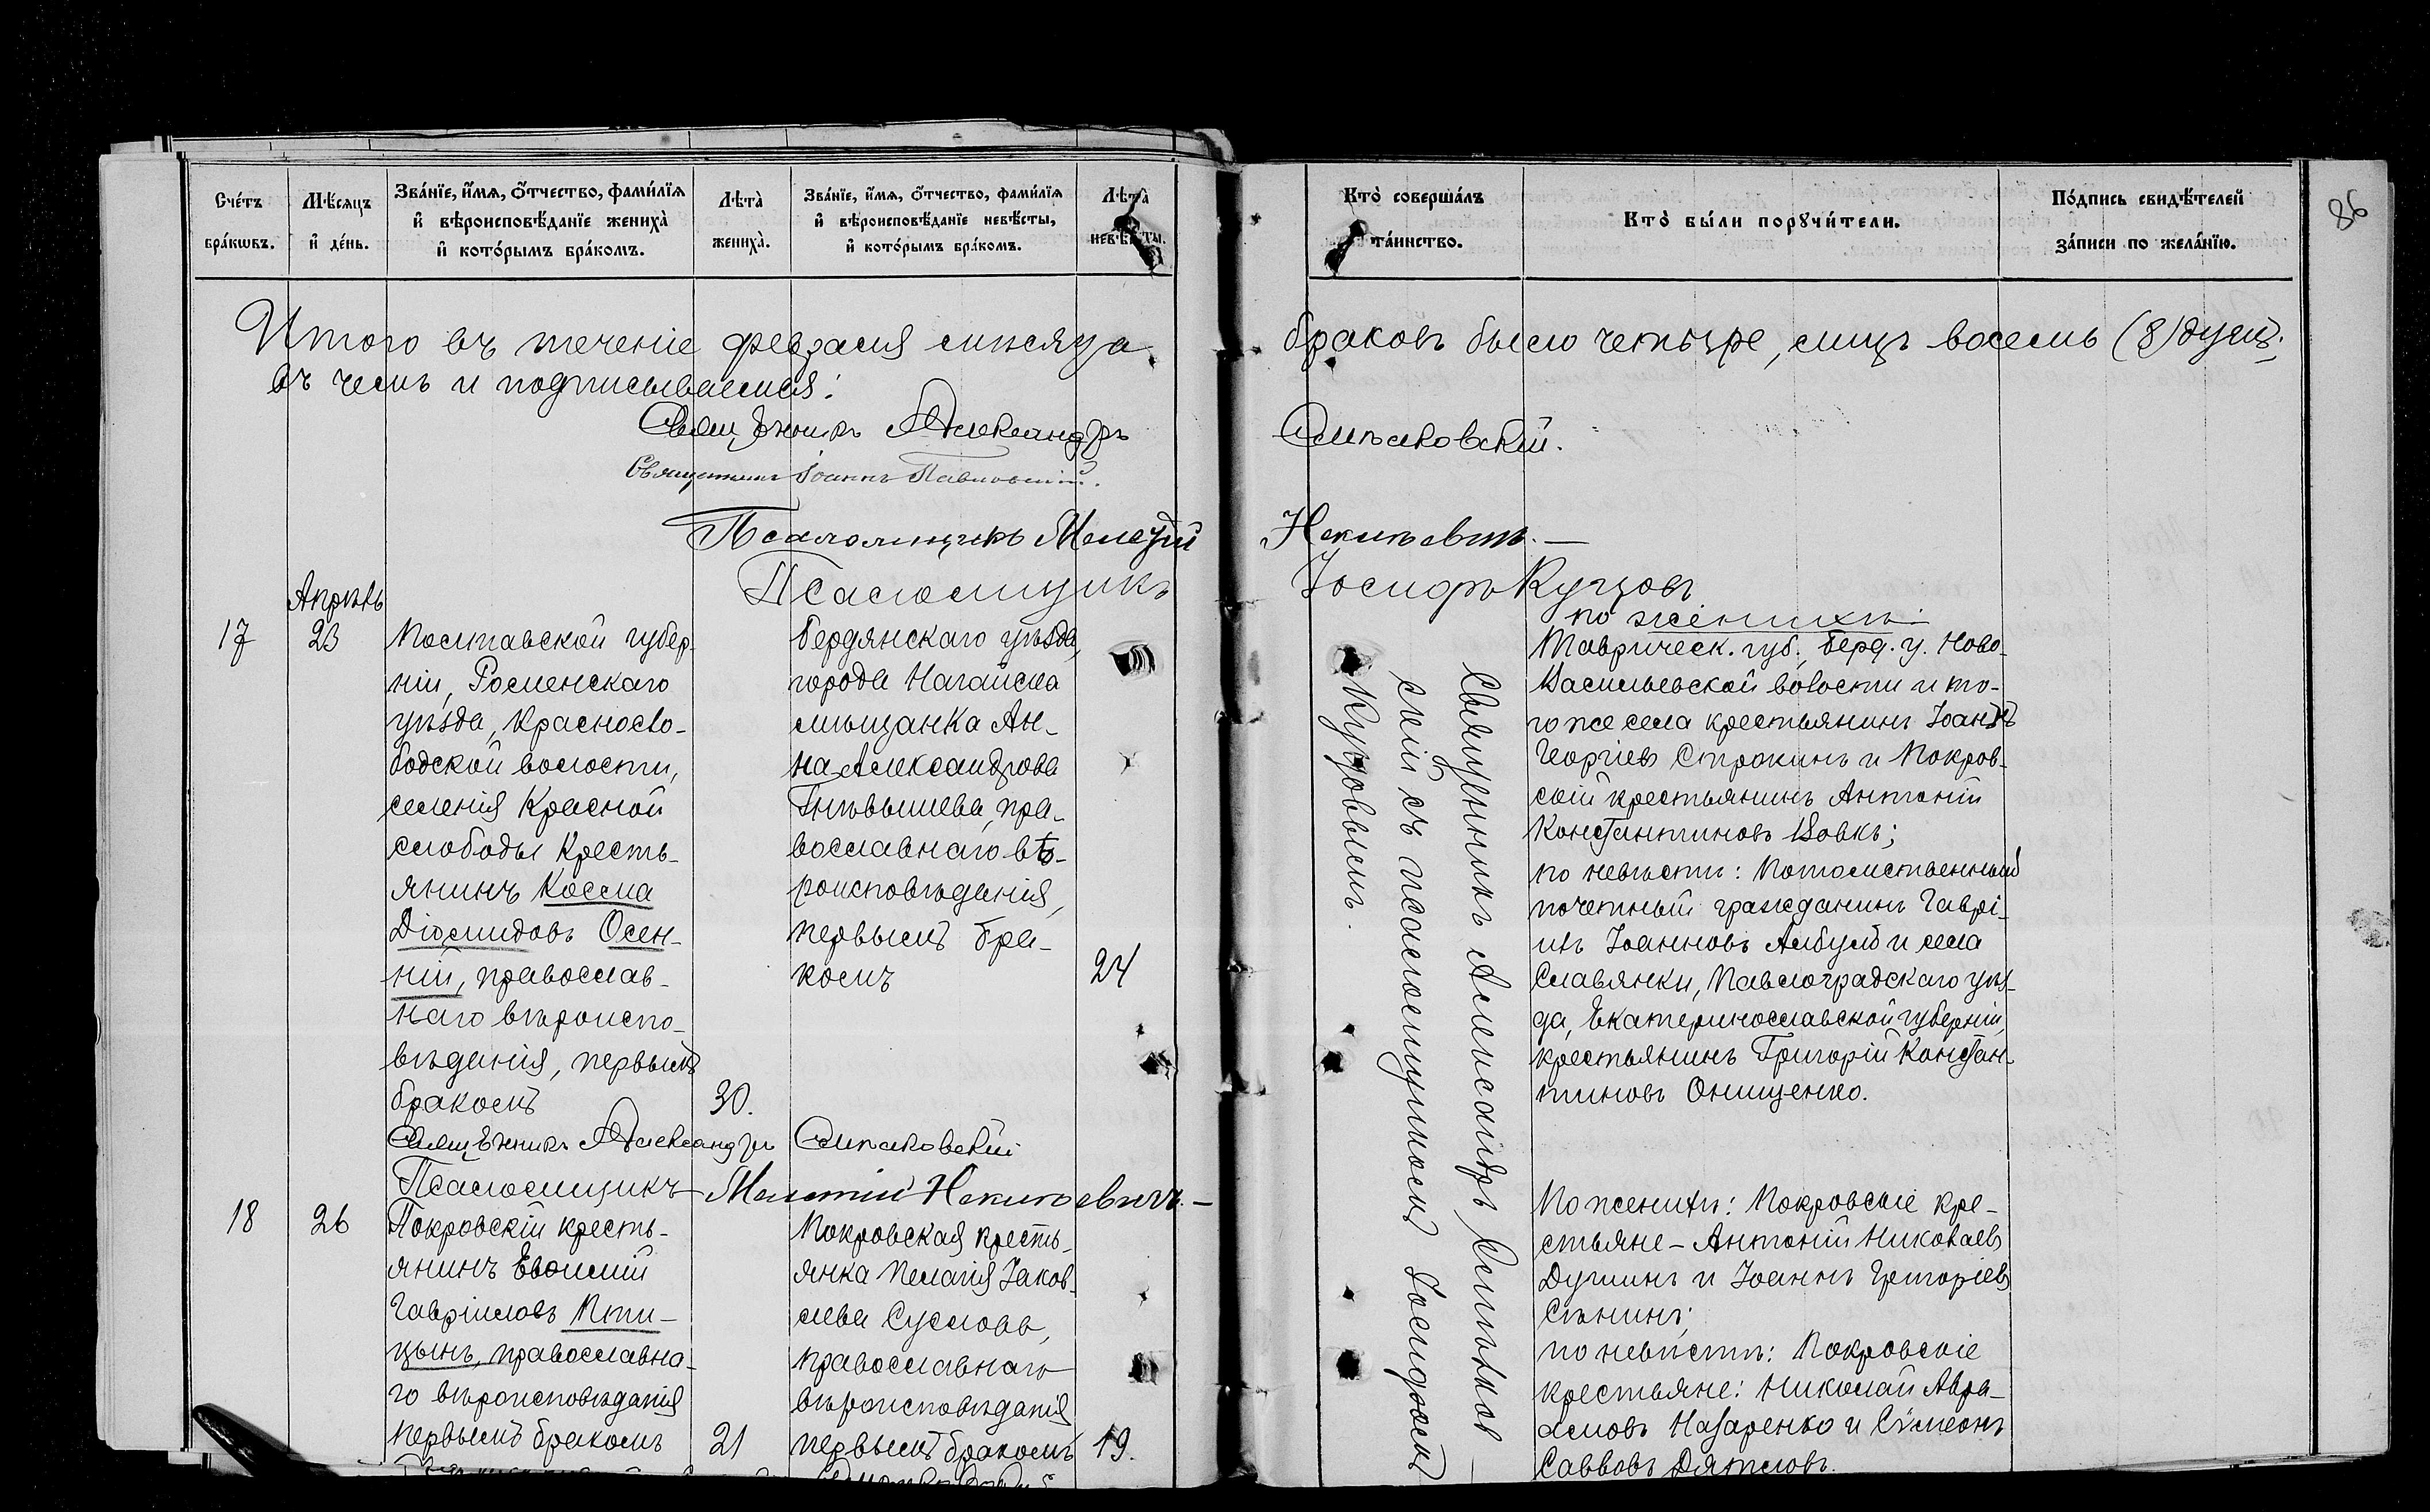 Сче́тъ бра́кѡвъ.
Мѣ́сяцъ и҆ де́нь.
Зва́нїе, и҆́мѧ, ѻ҆́тчество, фами́лїѧ
и҆ вѣроисповѣ́данїе жениха̀
и҆ кото́рымъ бра́комъ.
Лѣта̀
жениха̀.
Зва́нїе, и҆́мѧ, ѻ҆́тчество, фами́лїѧ
и҆ вѣроисповѣ́данїе невѣ́сты,
и҆ кото́рымъ бра́комъ.
Лѣта̀
невѣ́сты.
Кто̀ соверша́лъ
та́инство.
Кто̀ бы́ли порꙋчи́тели.
По́дпись свидѣ́телей
за́писи по жела́нїю.
86
Итого въ теченіе февраля мѣсяца браковъ было четыре, лицъ восемь (8) душъ.
въ чемъ и подписываемся:
Священникъ Александръ Сильковскій.
Священникъ Іоаннъ Павловскій.
Псаломщикъ Мелетій Некитевичъ. —
Псаломщикъ Іосифъ Куцовъ
Апрѣль
17
23
Полтавской губер-
ніи, Роменскаго
уѣзда, Красносло-
бодской волости,
селенія Красной
слободы кресть-
янинъ Косма
Діомидовъ Осен-
ній, православ-
наго вѣроиспо-
вѣданія, первымъ
бракомъ
30.
бердянскаго уѣзда,
города Нагайска
мѣщанка Ан-
на Александрова
Гнѣвышева, пра-
вославнаго вѣ-
роисповѣданія,
первымъ бра-
комъ
24
Священникъ Александръ Сильковскій с псаломщикомъ Іосифомъ Куцовымъ.
по женихѣ
Таврическ. губ., берд. у. Ново-
Васильевской волости и то-
го же села крестьянинъ Іоаннъ
Георгіевъ Строкинъ и Покров-
скій крестьянинъ Антоній
Константиновъ Вовкъ;
по невѣстѣ: Потомственный
почетный гражданинъ Гаврі-
илъ Іоанновъ Албулъ и села
Славянки, Павлоградскаго уѣз-
да, Екатеринославской губерніи,
крестьянинъ Григорій Констан-
тиновъ Онищенко.
Священникъ Александръ Сильковскій
Псаломщикъ Мелетій Некитевичъ. —
18
26
Покровскій кресть-
янинъ Евѳимій
Гавріиловъ Пти-
цынъ, православна-
го вѣроисповѣданія
первымъ бракомъ
21
Покровская кресть-
янка Пелагія Іаков-
лева Суслова,
православнаго
вѣроисповѣданія
первымъ бракомъ
19.
По женихѣ: Покровскіе кре-
стьяне – Антоній Николаевъ
Душинъ и Іоаннъ Григоріевъ
Сѣнинъ;
по невѣстѣ: Покровскіе
крестьяне: Николай Авра-
амовъ Назаренко и Сѵмеонъ
Саввовъ Дятловъ.